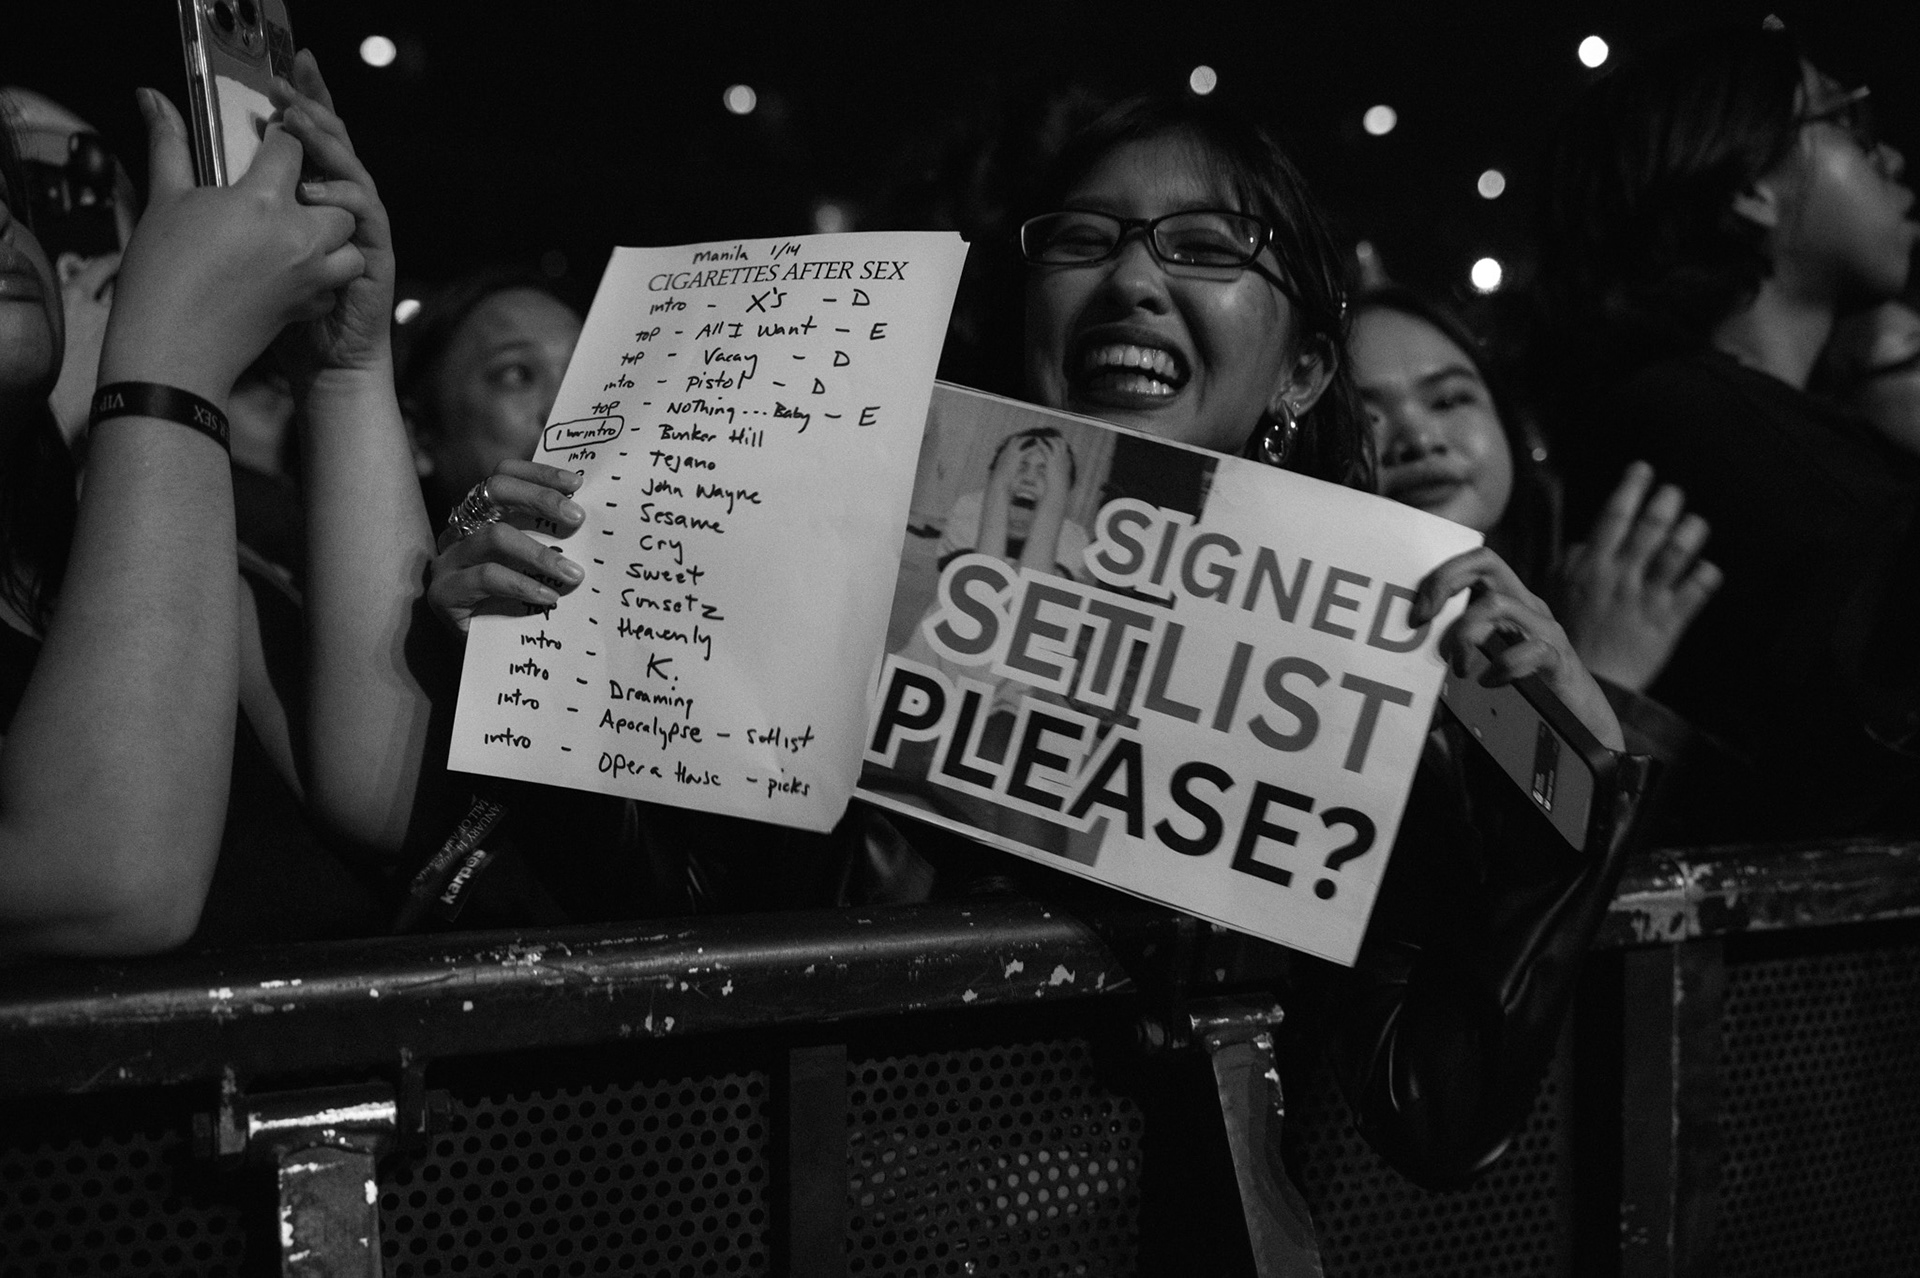 Manila 1/14
CIGARETTES AFTER SEX
intro - X's - D
top - All I Want - E
top - Vacay - D
intro - Pistol - D
top - Nothing... Baby - E
1 bar intro - Bunker Hill
intro - Tejano
- John Wayne
- Sesame
- Cry
- Sweet
- Sunsetz
top - Heavenly
intro - K.
intro - Dreaming
intro - Apocalypse - setlist
intro - Opera House - picks
SIGNED
SETLIST
PLEASE?
VIP
SEX
karpos